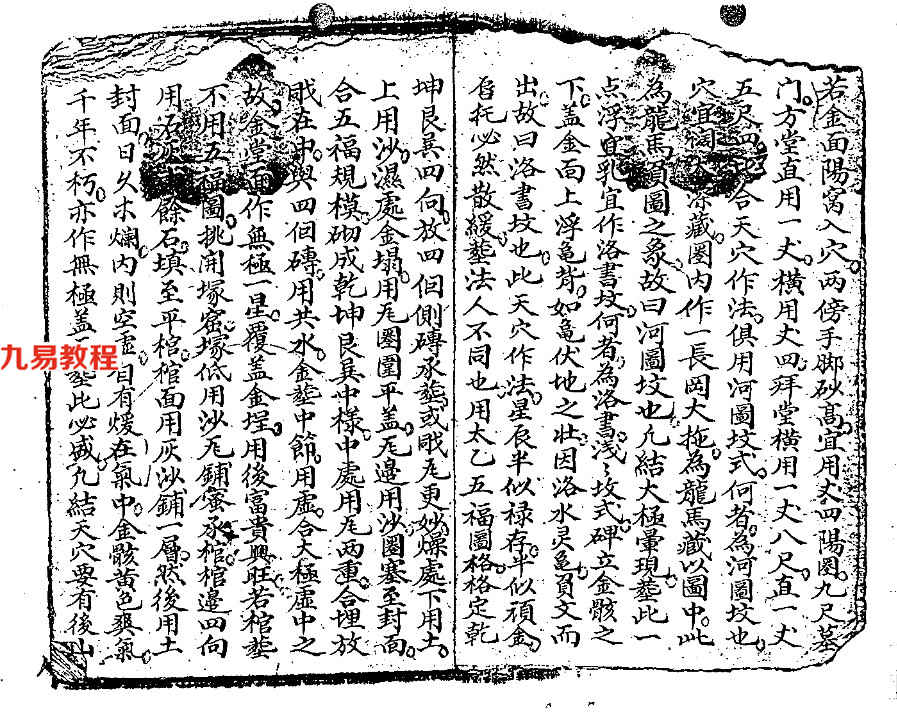 若金面陽窩入穴兩傍手腳砂髙宜用丈四陽圏九尺墓
门方堂直用一丈橫用丈四拜堂橫用一丈八尺直一丈
五尺四 合天穴作法俱用河圖坟式何者為河圖坟也
穴宜闊 深藏圏內作一長岡大拖為龍馬藏以圖中此
為龍馬負圖之象故曰河圖坟也凢結大極暈現塟此一
点浮直乳宜作洛書坟何者為洛書浅〻坟式碑立金骸之
下盖金面上浮亀背如亀伏地之壮因洛水灵亀負文而
出故曰洛書坟也此天穴作法星辰半似禄存半似頑金
唇托必然散緩塟法人不同也用太乙五福圖格格定乾
坤艮巽四向放四佪側磚承塟或戝瓦更妙燥處下用土
上用沙濕處金塌用瓦圏圍平盖瓦邉用沙圏塞至封面
合五福規模砌成乾坤艮巽中樣中處用瓦两重合埋放
戝在中與四佪磚用共水金塟中節用虚合大極虚中之
故金堂面作無極一星覆盖金埕用後富貴興旺若棺塟
不用五福圖挑開塚窰塚低用沙瓦鋪蜜承棺棺邉四向
用石灰 餘石填至平棺棺面用灰沙鋪一層然後用土
封面日久木爛內則空虚自有煖在氣中金骸黄色爽氣
千年不朽亦作無極盖 塟此必威凢結天穴要有後山
九易教程